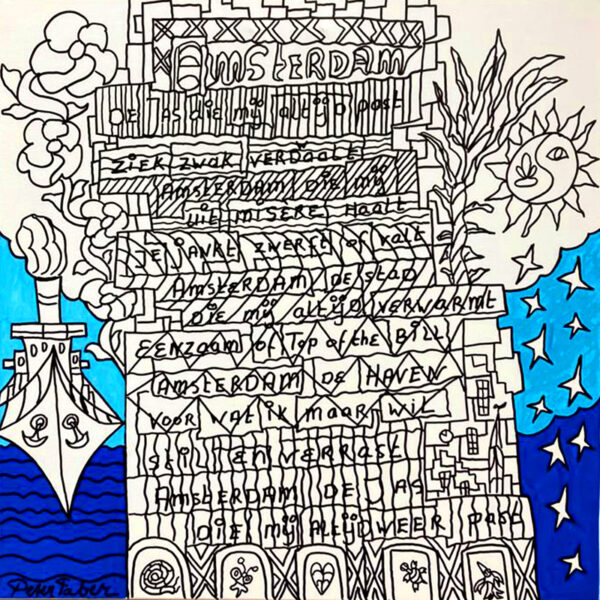 AMSTERDAM
DE JAS die mij altijd past
ZIEK ZWAK VERDWAALD
AMSTERDAM DIE MIJ
uit MISÈRE HAALT
JE JANKT ZWERFT OF VALT
AMSTERDAM DE STAD
DIE MIJ ALTIJD VERWARMT
EENZAAM of Top of the BILL
AMSTERDAM DE HAVEN
VOOR WAT iK MAAR WIL
STIL EN VERRAST
AMSTERDAM DE JAS
DIE MIJ ALTIJD WEER past
Peter Faber